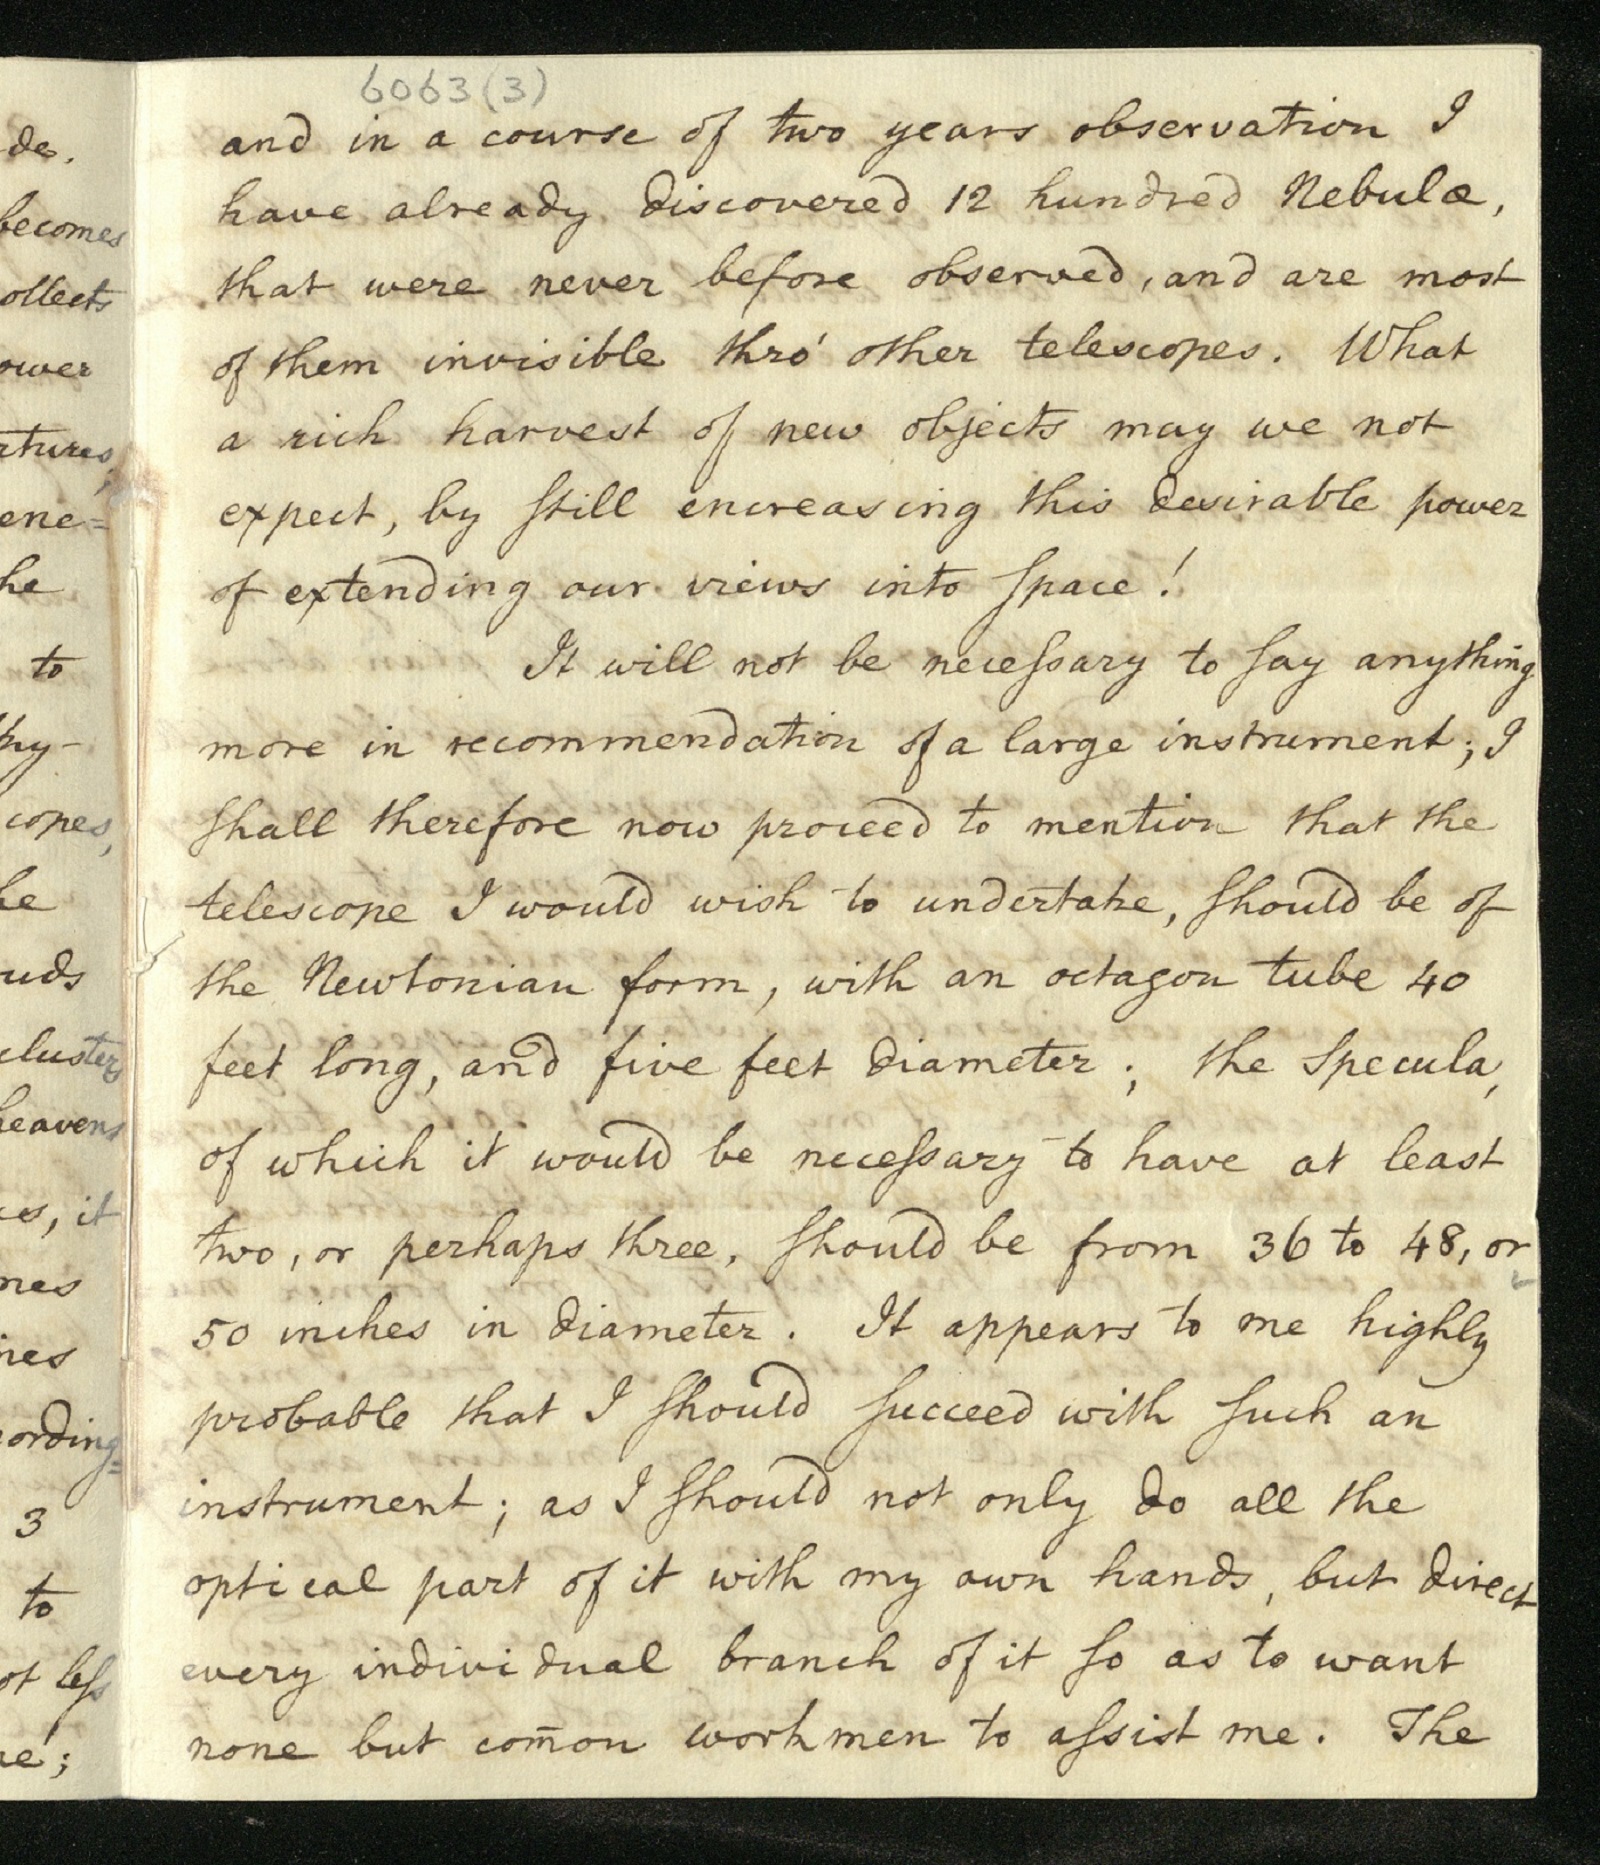 de.
becomes
ollects
ower
rtures,
ene=
he
to
hy-
copes,
he
uds
cluster,
heavens
es, it
mes
nes
cording=
3
to
ot leſs
ne;
6063(3)
and in a course of two years observation I
have already discovered 12 hundred Nebulæ,
that were never before observed, and are most
of them invisible thro' other telescopes. What
a rich harvest of new objects may we not
expect, by ſtill encreasing this desirable power
of extending our views into ſpace!
It will not be neceſsary to ſay anything
more in recommendation of a large instrument; I
ſhall therefore now proceed to mention that the
telescope I would wish to undertake, ſhould be of
the Newtonian form, with an octagon tube 40
feet long, and five feet diameter; the Specula,
of which it would be neceſsary to have at least
two, or perhaps three, ſhould be from 36 to 48, or
50 inches in diameter. It appears to me highly
probable that I ſhould ſucceed with ſuch an
instrument; as I ſhould not only do all the
optical part of it with my own hands, but direct
every individual branch of it ſo as to want
none but com̄on workmen to aſsist me. The